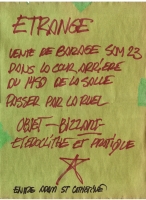 ETRANGE
VENTE DE GARAGE SAM 23
DANS LA COUR ARRIERE
DU 1450 DE LA SALLE
PASSER PAR LA RUEL
OBJET - BIZZARE
ETEROCLITHE ET PRATIQUE
ENTRE ADAM ST CATHERINE